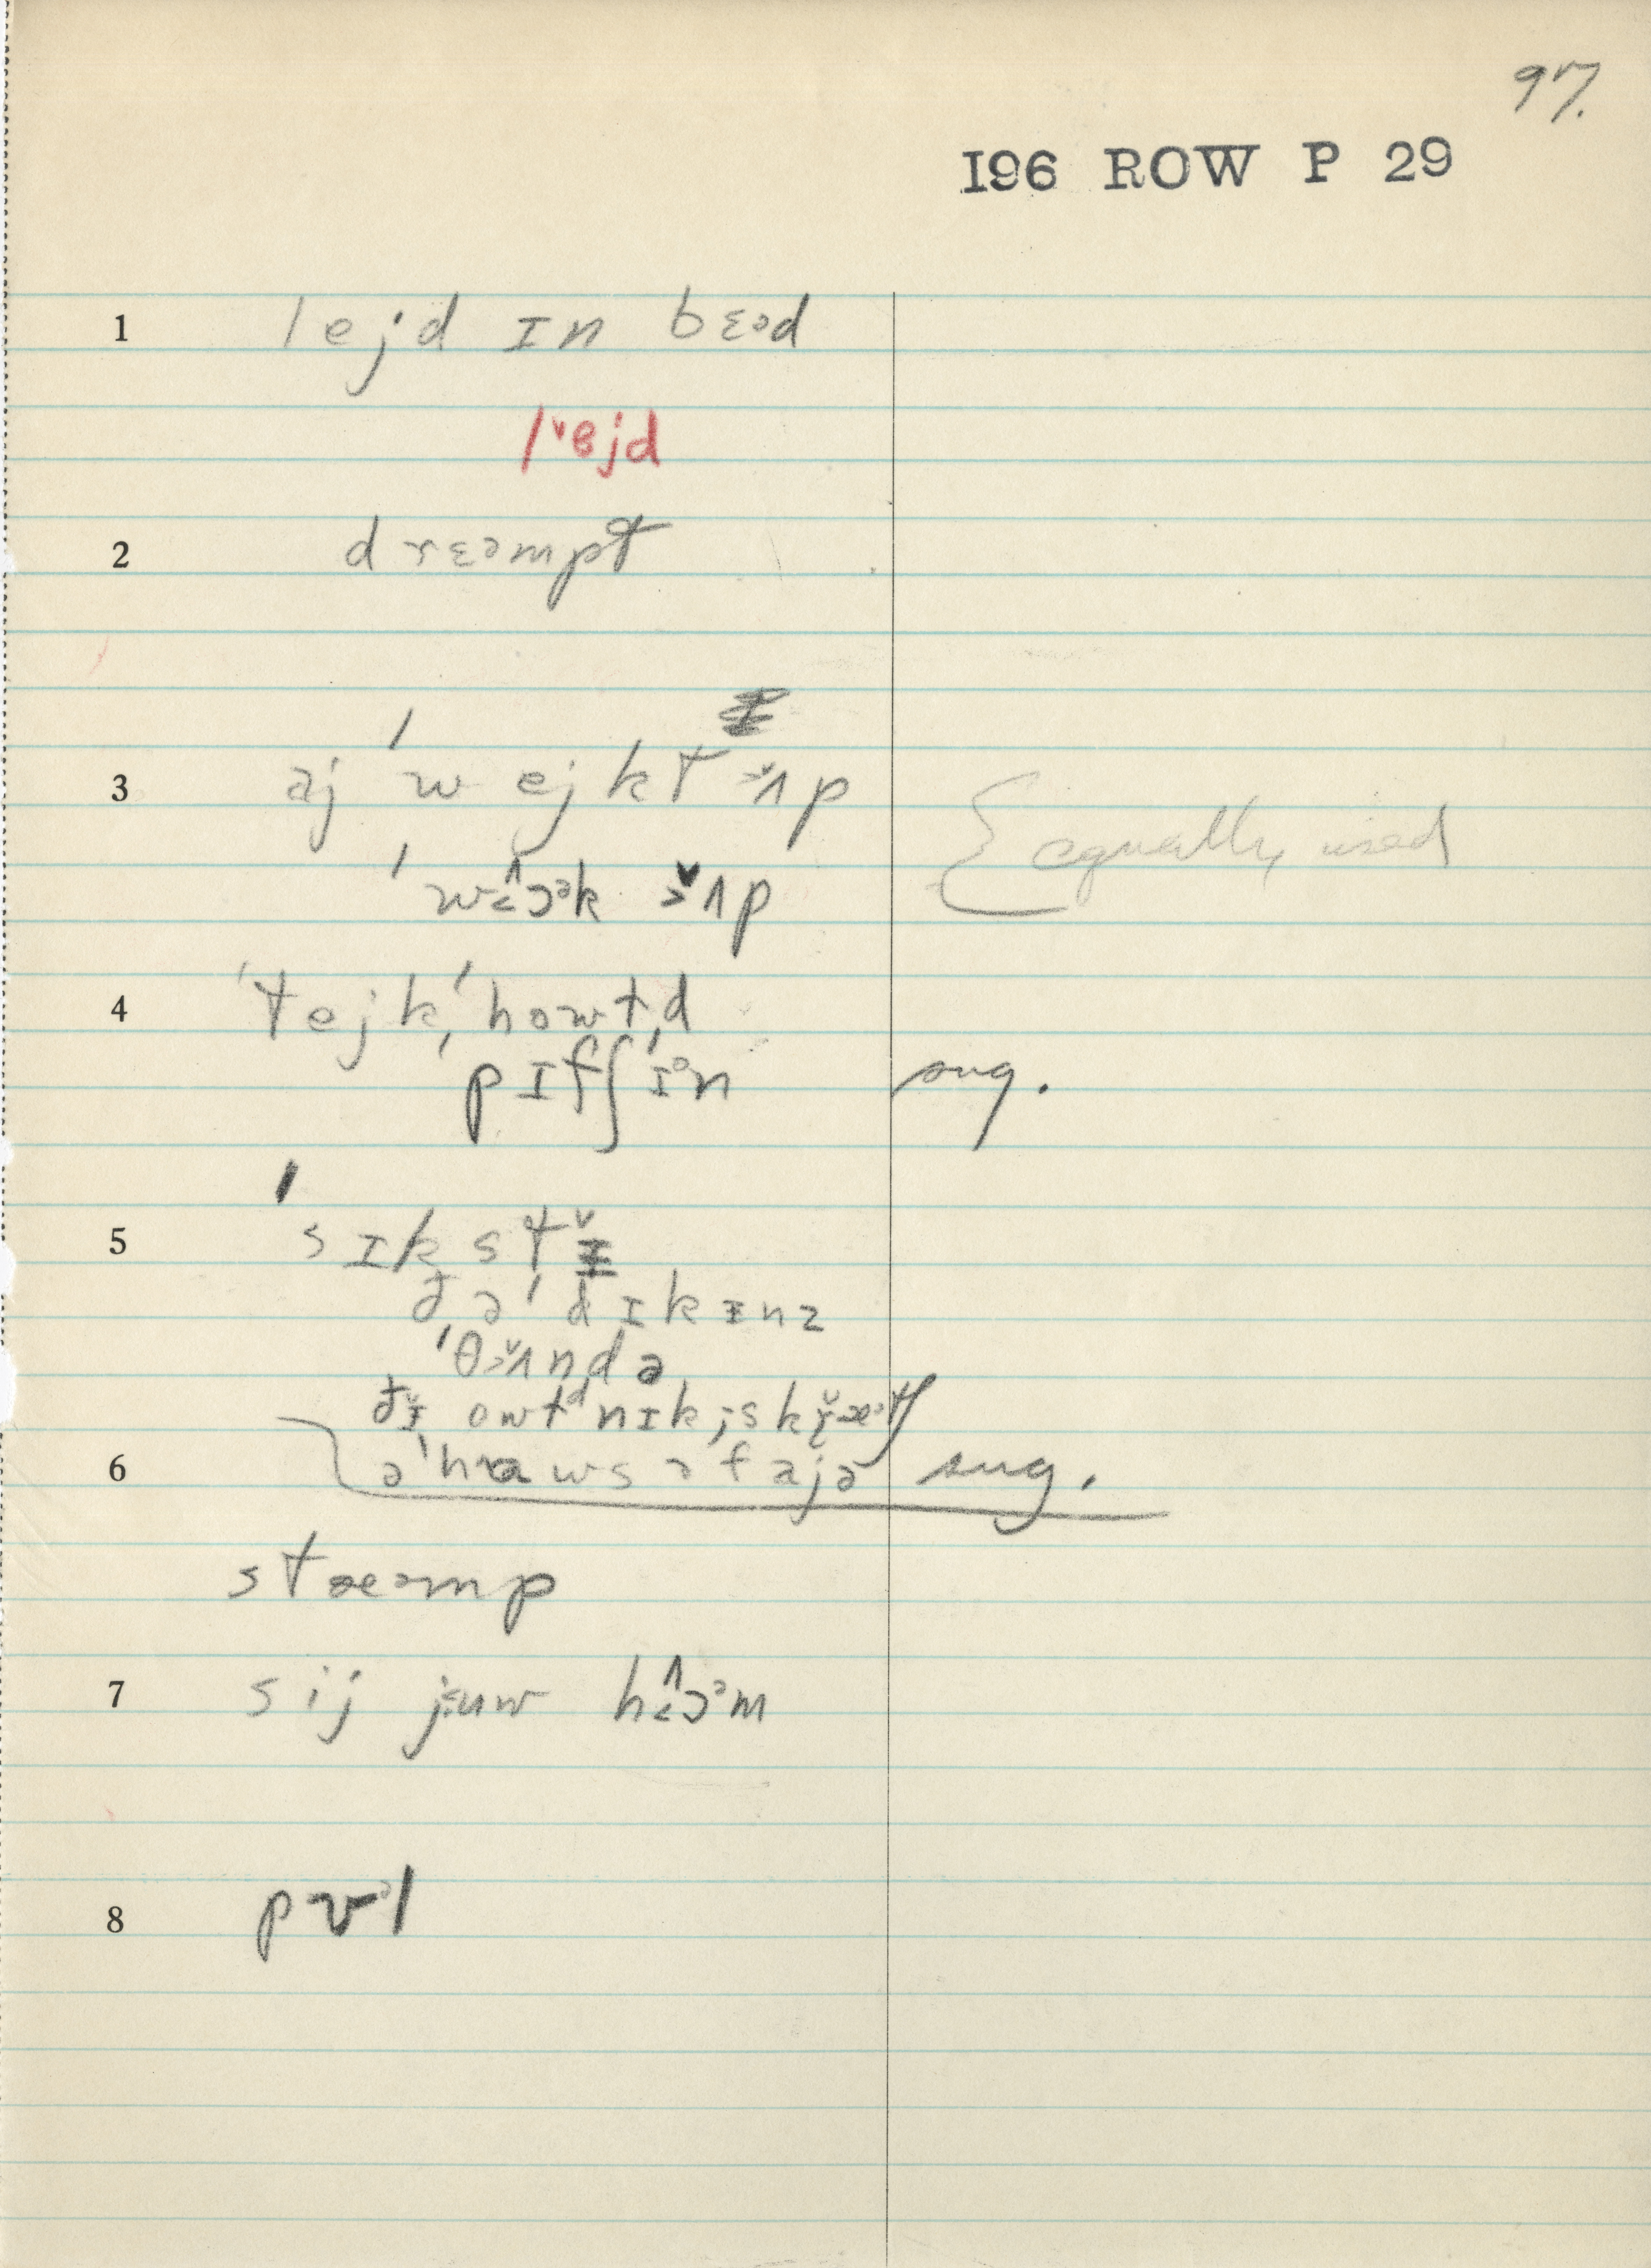 97.
I96 ROW P 29
1 lejd ɪn bɛəd
lˇejd
2 drɛəmpt
3 aj ˈwejkt ˃̌ʌp
ˈw˂̂ɔᵊk ˃̌ʌp
{ equally used
4 ˈtejkˌˈhowtˌd
pɪfʃɪᵊn sug.
5 ˈsɪkstɨ̌
ðəˈdɪkɨnz
ˈθ˃̌ʌndə
əˈhaʊsəfajə sug.
6
stæəmp
7 sij jʉw h˂̂ɔᵊm
8 pʊᵊl